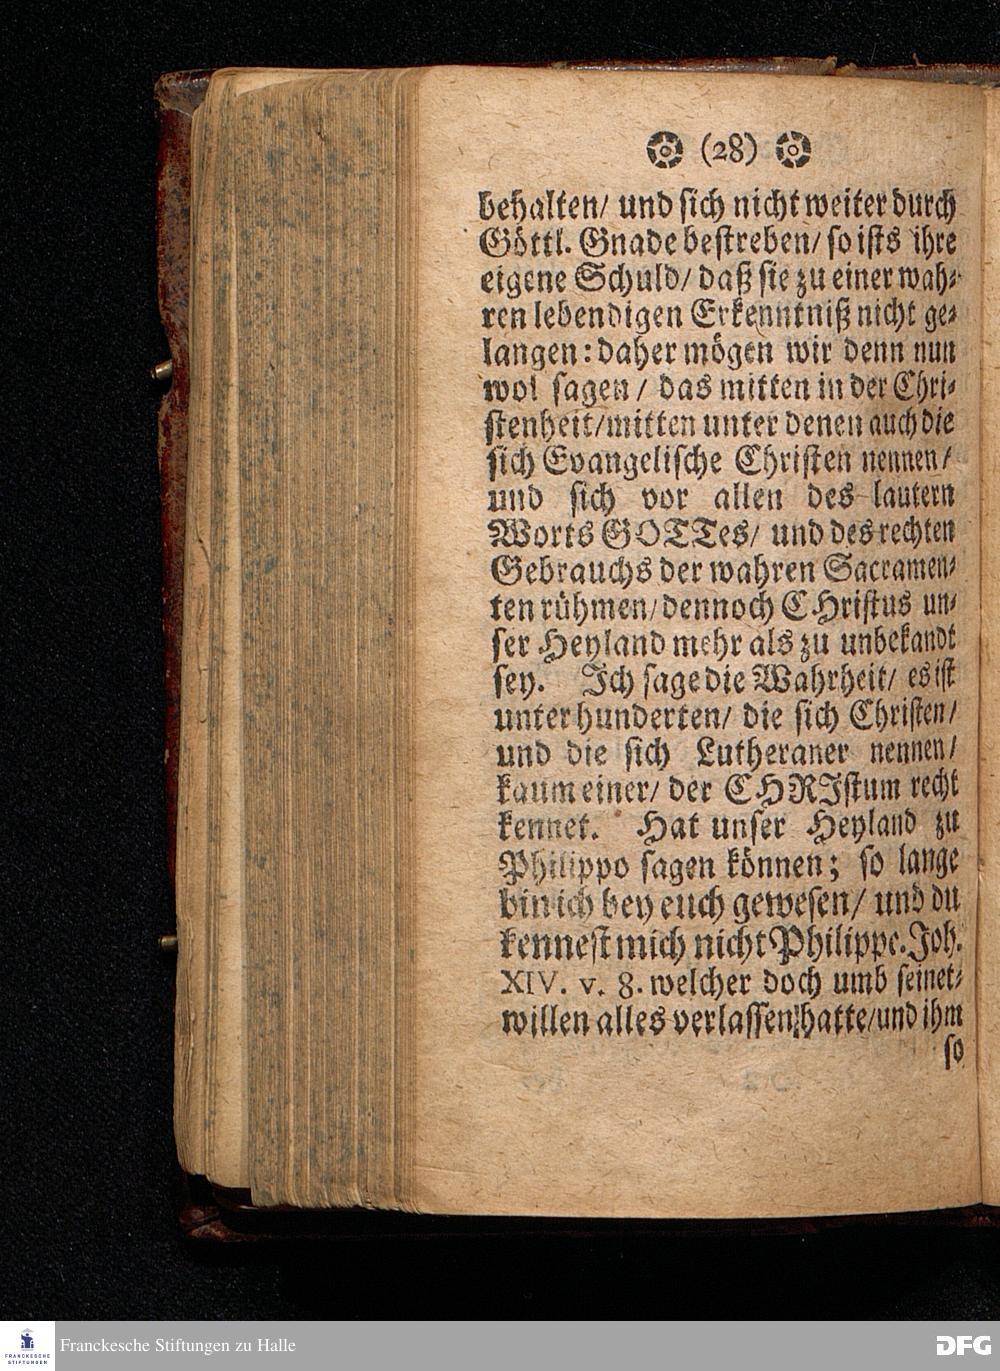 (28)
behalten/ und sich nicht weiter durch
Göttl. Gnade bestreben/ so ists ihre
eigene Schuld/ daß sie zu einer wah-
ren lebendigen Erkenntniß nicht ge-
langen: daher mögen wir denn nun
wol sagen / das mitten in der Chri-
stenheit/mitten unter denen auch die
sich Evangelische Christen nennen/
und sich vor allen des lautern
Worts GOTTes/ und des rechten
Gebrauchs der wahren Sacramen-
ten rühmen/dennoch CHristus un-
ser Heyland mehr als zu unbekandt
sey. Ich sage die Wahrheit/ es ist
unter hunderten/ die sich Christen/
und die sich Lutheraner nennen/
kaum einer/ der CHRIstum recht
kennet. Hat unser Heyland zu
Philippo sagen können; so lange
bin ich bey euch gewesen/ und du
kennest mich nicht Philippe. Joh.
XIV. v. 8. welcher doch umb seinet-
willen alles verlassen hatte/und ihm
so
Franckesche Stiftungen zu Halle
FRANCKESCHE
STIFTUNGEN
DFG